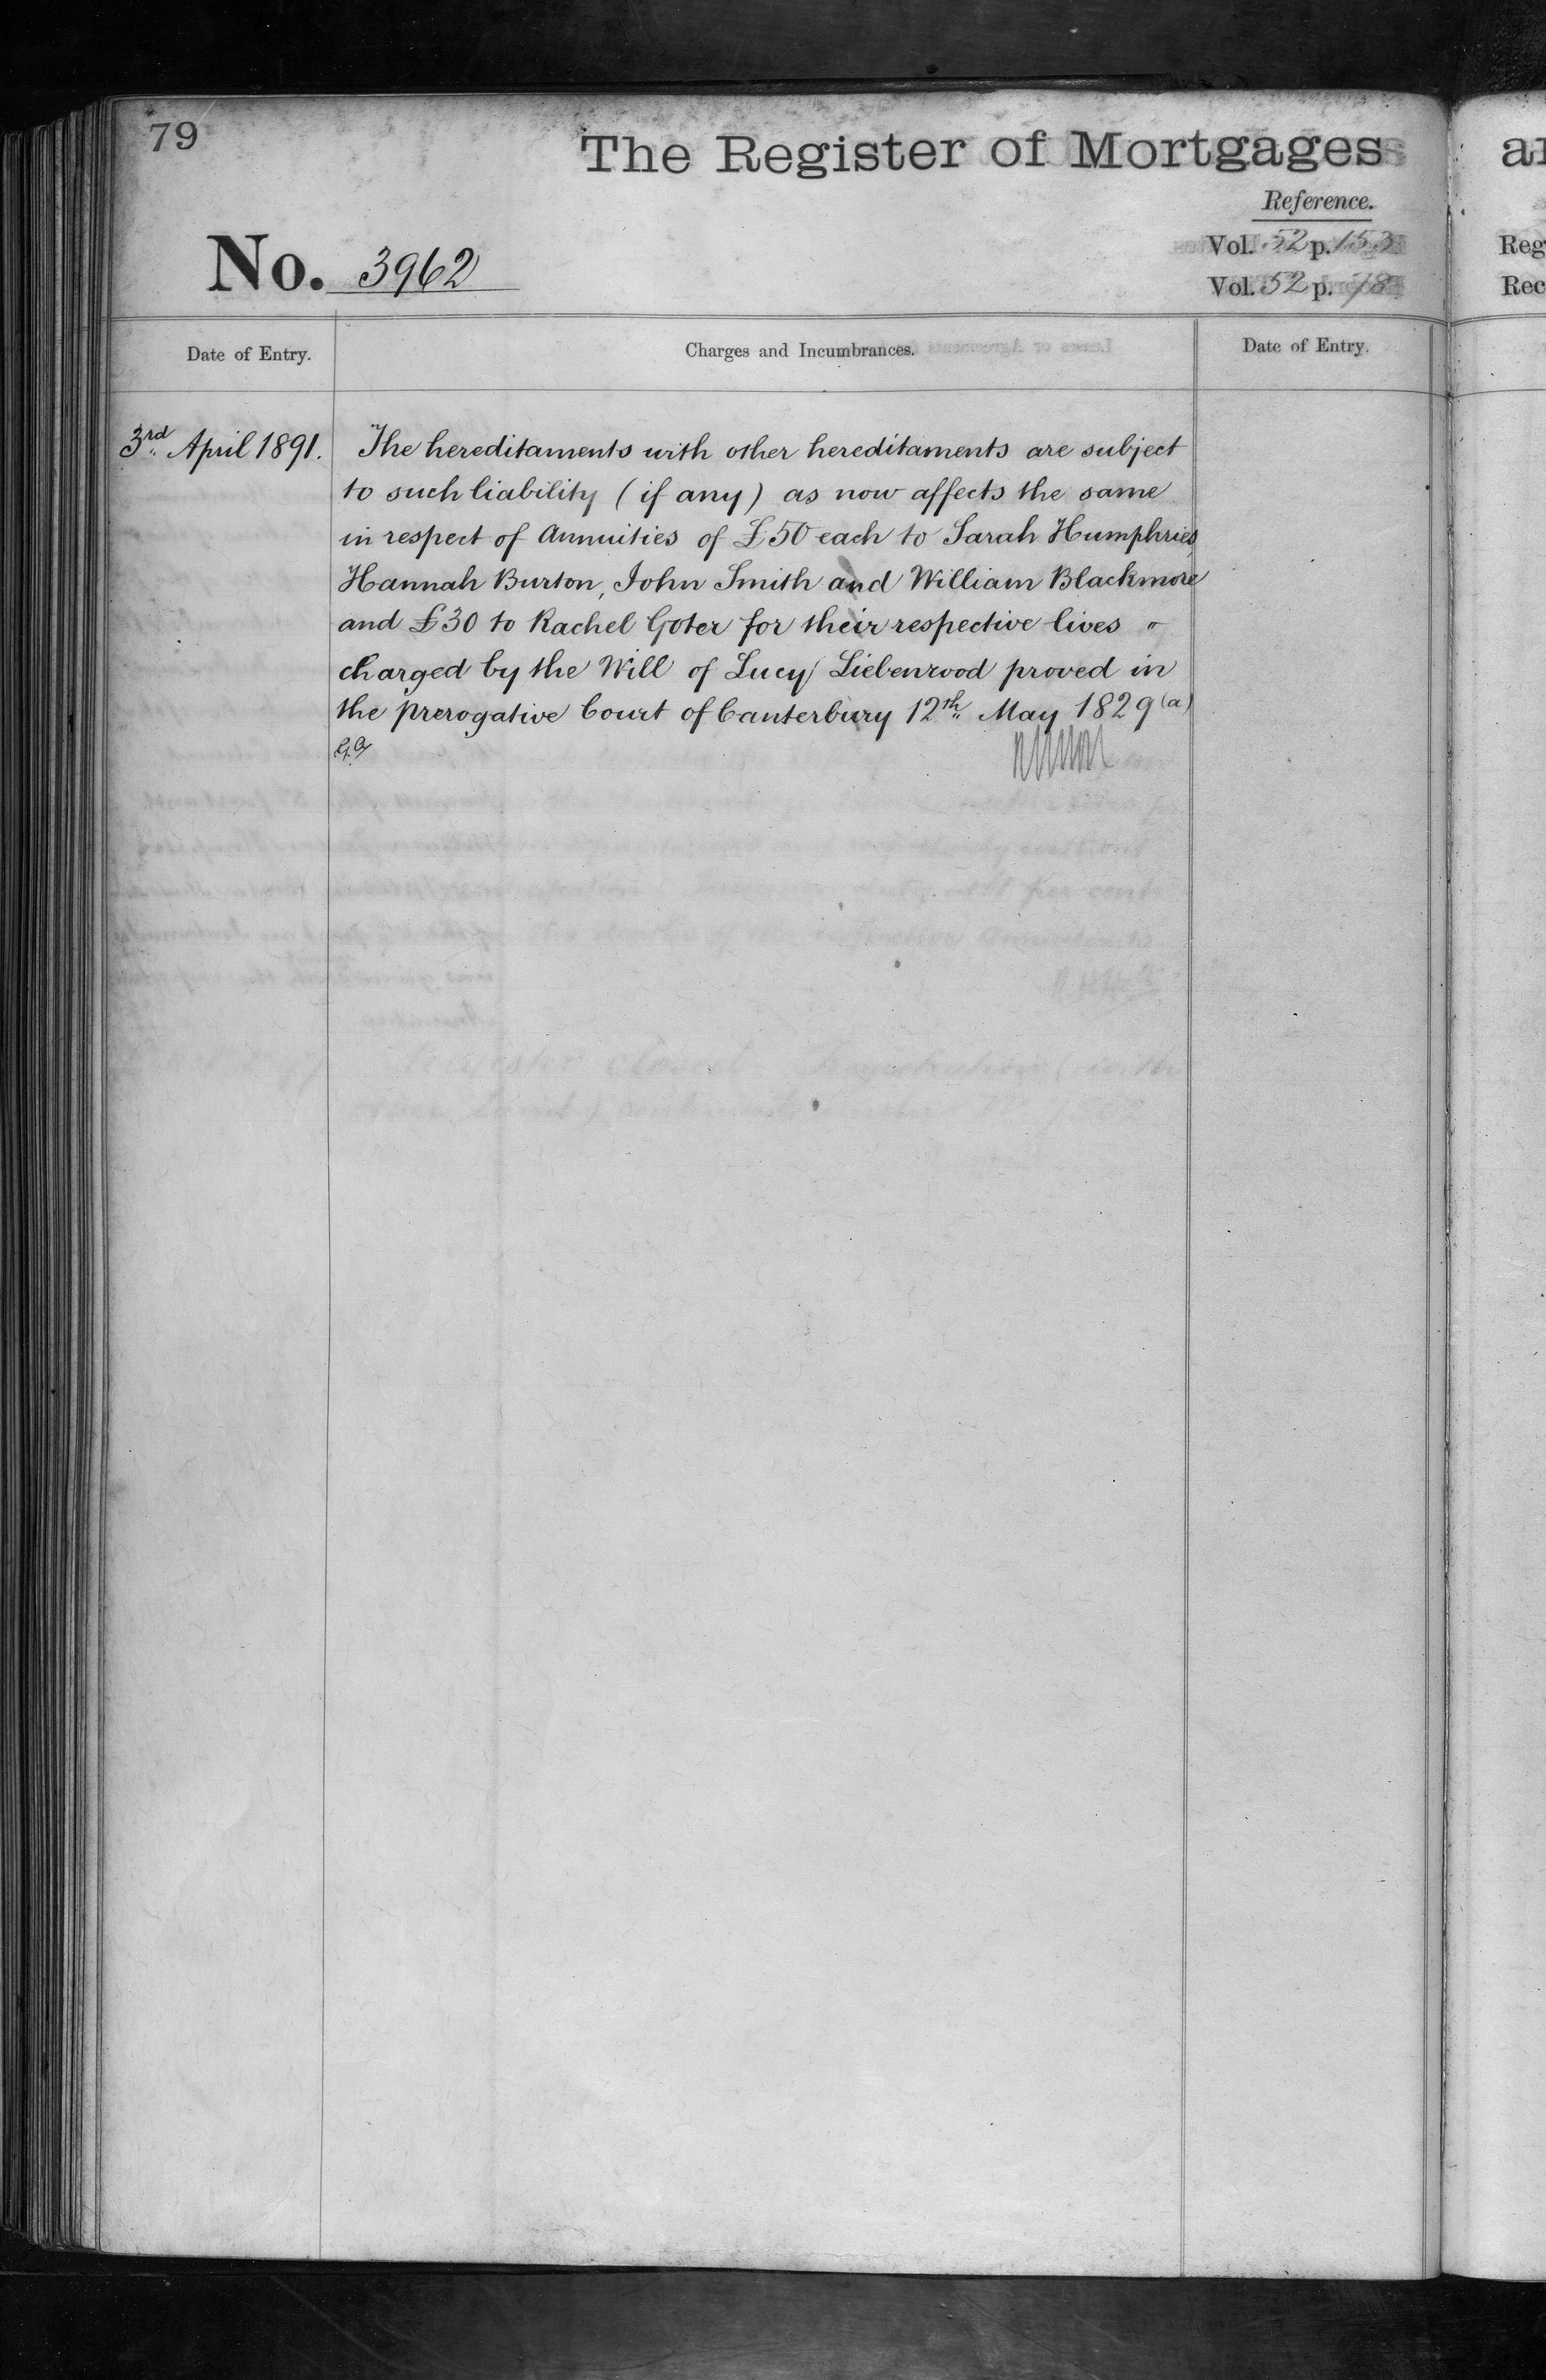 79
The Register of Mortgages
Reference.
No. 3962
Vol. 52 p. 153
Vol. 52 p. 78
Date of Entry.
Charges and Incumbrances.
Date of Entry.
3rd April 1891.
The hereditaments with other hereditaments are subject
to such liability (if any) as now affects the same
in respect of Annuities of £50 each to Sarah Humphries
Hannah Burton, John Smith and William Blackmore
and £30 to Rachel Goter for their respective lives "
charged by the Will of Lucy Liebenrood proved in
the prerogative Court of Canterbury 12th May 1829 (a)
Reg
Rec